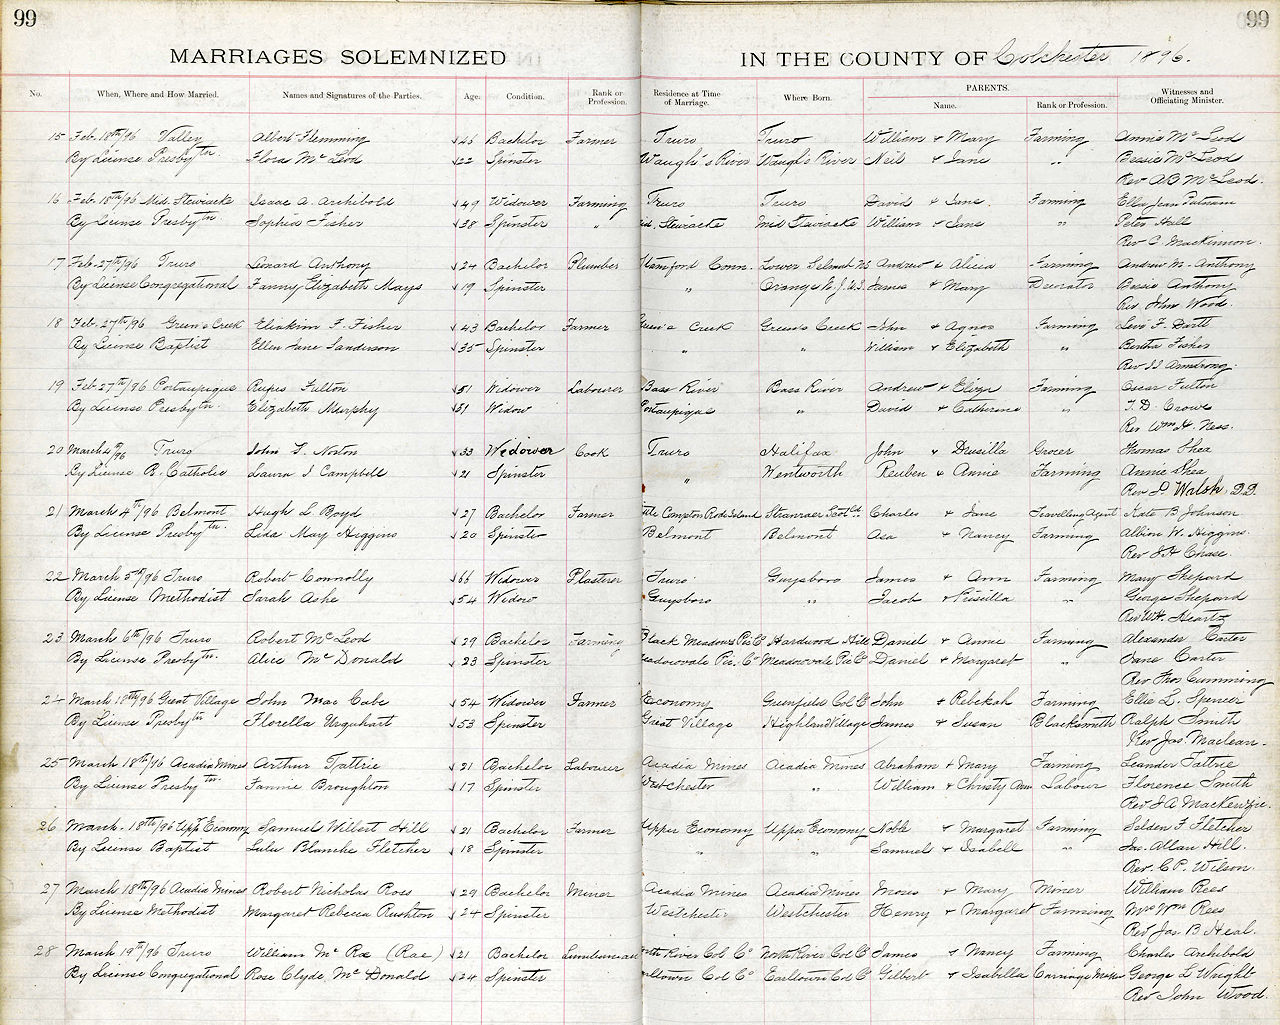 99 99
MARRIAGES SOLEMNIZED IN THE COUNTY OF Colchester 1896.
No. When, Where and How Married. Names and Signatures of the Parties. Age. Condition. Rank or Profession. Residence at Time of Marriage. Where Born. PARENTS. Name. Rank or Profession. Witnesses and Officiating Minister.
15 Feb. 18th/96 Valley Albert Flemming 46 Bachelor Farmer Truro Truro William & Mary Farming Annie McLeod
By License Presbytn. Flora McLeod 22 Spinster Waugh's River Waugh's River Neil & Jane " Bessie McLeod
Rev A B McLeod.
16 Feb. 18th/96 Mid. Stewiacke Isaac A. Archibald 49 Widower Farming Truro Truro David & Jane. Farming Ella Jean Putnam
By License Presbytn. Sophia Fisher 38 Spinster " Mid. Stewiacke Mid Stewiacke William & Jane " Peter Hall
Rev C. Mackinnon.
17 Feb. 27th/96 Truro Leonard Anthony 24 Bachelor Plumber Stamford Conn. Lower Selmah NS Andrew & Alicia Farming Andrew M. Anthony
By License Congregational Fanny Elizabeth Mays 19 Spinster " Orange N.J. U.S. James & Mary Decorator Bessie Anthony
Rev John Wood.
18 Feb. 27th/96 Green's Creek Eliakim F. Fisher 43 Bachelor Farmer Green's Creek Green's Creek John & Agnes Farming Levi F. Dartt
By License Baptist Ellen Jane Sanderson 35 Spinster " " William & Elizabeth " Bertha Fisher
Rev Armstrong.
19 Feb. 27th/96 Portaupique Rufus Fulton 51 Widower Labourer Bass River Bass River Andrew & Eliza Farming Oscar Fulton
By License Presbytn. Elizabeth Murphy 51 Widow Portaupique " David & Catherine " T. D. Crowe
Rev Wm H. Ness.
20 March 4th/96 Truro John T. Norton 33 Widower Cook Truro Halifax John & Drusilla Grocer Thomas Shea
By License R. Catholic Laura J Campbell 21 Spinster " Wentworth Reuben & Annie Farming Annie Shea
Rev Walsh, D.D.
21 March 4th/96 Belmont Hugh L Boyd 27 Bachelor Farmer Little Compton Rode Island Stranraer Scotld. Charles & Jane Travelling Agent Kate B Johnson
By License Presbytn. Lida May Higgins 20 Spinster Belmont Belmont Asa & Nancy Farming Albion W. Higgins.
Rev J H Chase.
22 March 5th/96 Truro Robert Connolly 66 Widower Plasterer Truro Guysboro James & Ann Farming Mary Shepard
By License Methodist Sarah Ashe 54 Widow Guysboro " Jacob & Priscilla " George Shepard
Rev W H. Heartz
23 March 6th/96 Truro Robert McLeod 29 Bachelor Farming Black Meadows Pic Co Hardwood Hill Daniel & Annie Farming Alexander Carter
By License Presbytn. Alice McDonald 23 Spinster Meadowvale Pic. Co Meadowvale Pic Co Daniel & Margaret " Jane Carter
Rev Thos Cumming
24 March 18th/96 Great Village John MacCabe 54 Widower Farmer Economy Greenfield Col Co John & Rebekah Farming Ellie L. Spencer
By License Presbytn Florella Urquhart 53 Spinster Great Village Highland Village James & Susan Blacksmith Ralph Smith
Rev Jas. Maclean.
25 March 18th/96 Acadia Mines Arthur Tattrie 21 Bachelor Labourer Acadia Mines Acadia Mines Abraham & Mary Farming Leander Tattrie
By License Presbytn. Fannie Broughton 17 Spinster Westchester " William & Christy Ann Labour Florence Smith
Rev J A MacKenzie.
26 March 18th/96 Upp Economy Samuel Wilbert Hill 21 Bachelor Farmer Upper Economy Upper Economy Noble & Margaret Farming Selden F Fletcher
By License Baptist Lulu Blanche Fletcher 18 Spinster " " Samuel & Isabell " Jas. Allan Hill.
Rev. C. P. Wilson.
27 March 18th/96 Acadia Mines Robert Nicholas Rees 29 Bachelor Miner Acadia Mines Acadia Mines Moses & Mary Miner William Rees
By License Methodist Margaret Rebecca Rushton 24 Spinster Westchester Westchester Henry & Margaret Farming Mrs Wm Rees
Rev Jos. B Heal.
28 March 19th/96 Truro William McRae (Rae) 21 Bachelor Lumberman North River Col Co North River Col Co James & Nancy Farming Charles Archibald
By License Congregational Rose Clyde McDonald 24 Spinster Earltown Col Co Earltown Col Co Gilbert & Isabella Carriage Maker George L Wright
Rev John Wood.